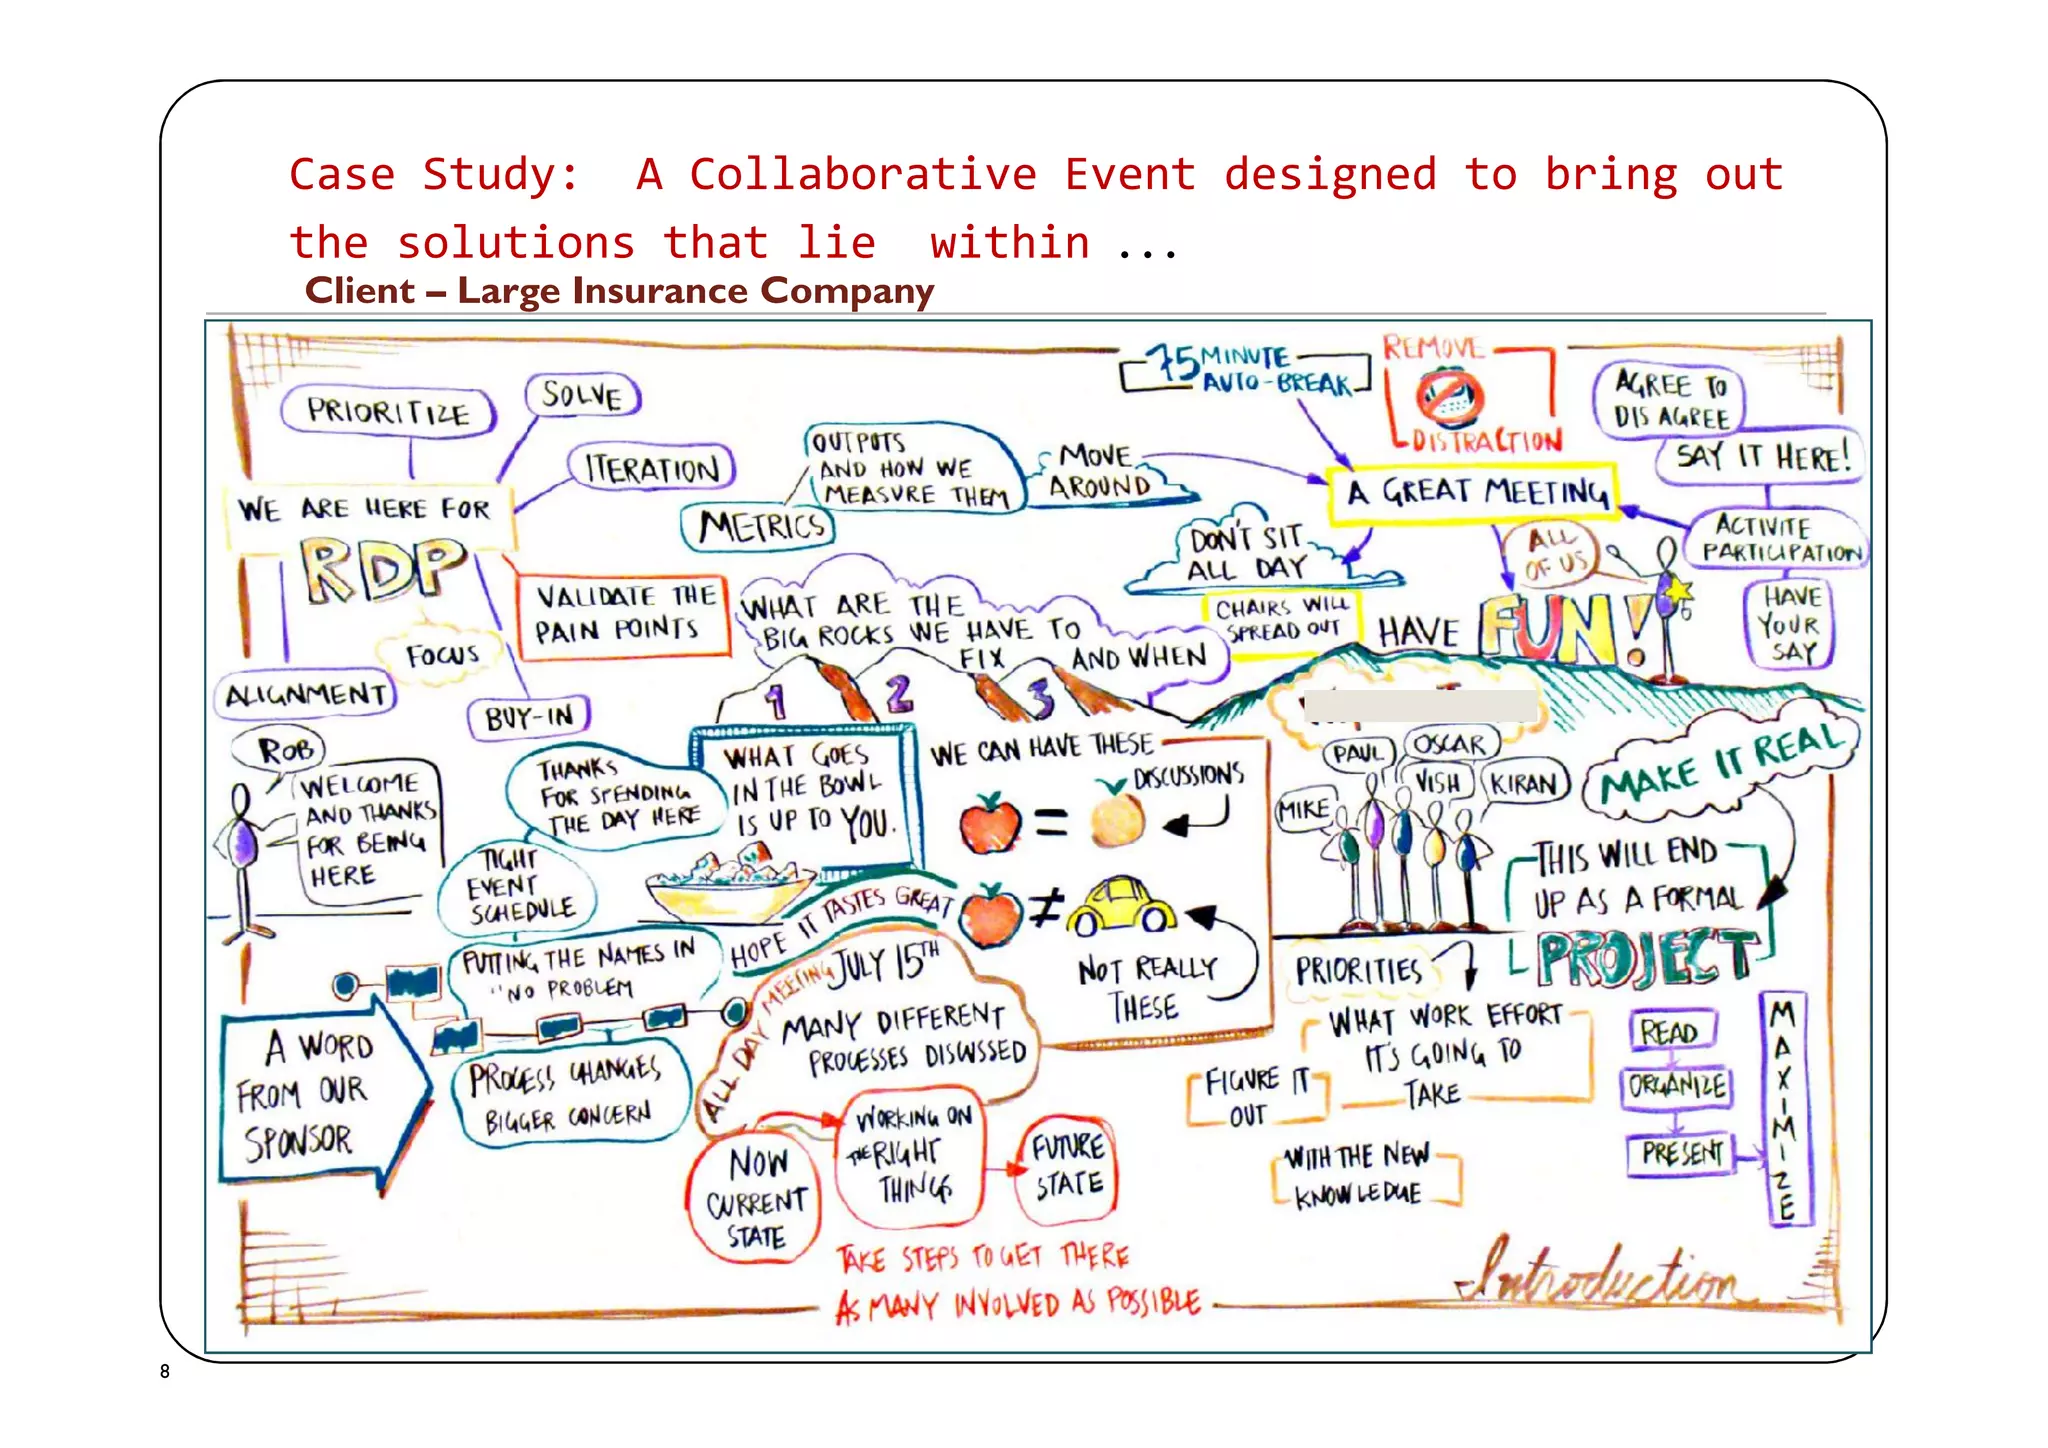 Case Study:  A Collaborative Event designed to bring out
the solutions that lie  within ...
Client – Large Insurance Company
75 MINUTE
AUTO-BREAK
REMOVE
DISTRACTION
AGREE TO
DISAGREE
SAY IT HERE!
ACTIVITE
PARTICIPATION
HAVE
YOUR
SAY
PRIORITIZE
SOLVE
ITERATION
WE ARE HERE FOR
RDP
FOCUS
ALIGNMENT
BUY-IN
VALIDATE THE
PAIN POINTS
METRICS
OUTPUTS
AND HOW WE
MEASURE THEM
MOVE
AROUND
A GREAT MEETING
DON'T SIT
ALL DAY
CHAIRS WILL
SPREAD OUT
ALL
OF US
HAVE FUN!
WHAT ARE THE
BIG ROCKS WE HAVE TO
FIX AND WHEN
1 2 3
ROB
WELCOME
AND THANKS
FOR BEING
HERE
THANKS
FOR SPENDING
THE DAY HERE
TIGHT
EVENT
SCHEDULE
PUTTING THE NAMES IN
"NO PROBLEM
PROCESS CHANGES
BIGGER CONCERN
A WORD
FROM OUR
SPONSOR
WHAT GOES
IN THE BOWL
IS UP TO YOU.
HOPE IT TASTES GREAT
WE CAN HAVE THESE
DISCUSSIONS
=
≠
NOT REALLY
THESE
ALL DAY MEETING JULY 15TH
MANY DIFFERENT
PROCESSES DISCUSSED
NOW
CURRENT
STATE
WORKING ON
THE RIGHT
THINGS
FUTURE
STATE
TAKE STEPS TO GET THERE
AS MANY INVOLVED AS POSSIBLE
PAUL
OSCAR
VISH
KIRAN
MIKE
MAKE IT REAL
THIS WILL END
UP AS A FORMAL
PROJECT
PRIORITIES
WHAT WORK EFFORT
IT'S GOING TO
TAKE
FIGURE IT
OUT
WITH THE NEW
KNOWLEDGE
READ
ORGANIZE
PRESENT
MAXIMIZE
Introduction
8